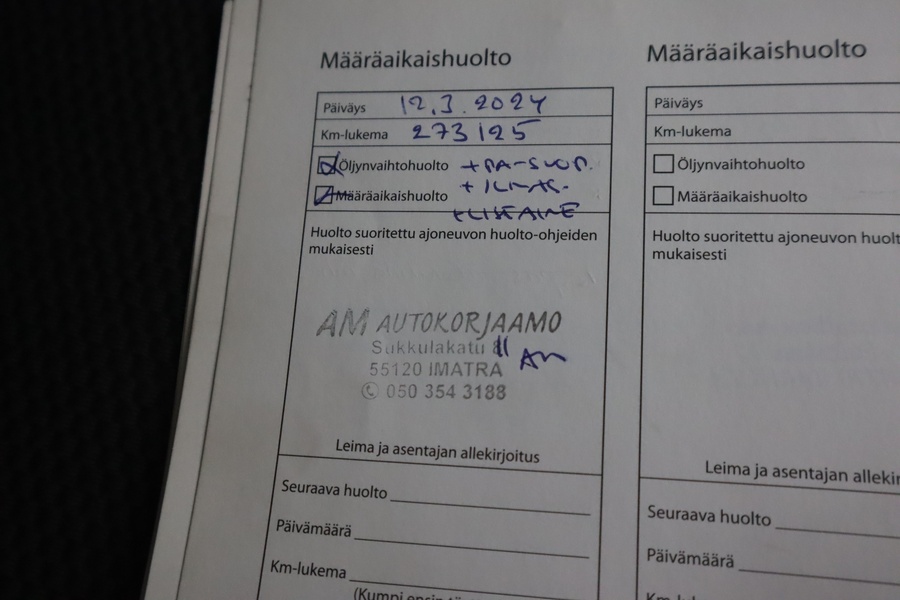 Määräaikaishuolto
Päiväys 12.3.2024
Km-lukema 273125
Öljynvaihtohuolto + RA-SUOD.
Määräaikaishuolto + ILMAS.
+ LISÄAINE
Huolto suoritettu ajoneuvon huolto-ohjeiden
mukaisesti
AM AUTOKORJAAMO
Sukkulakatu
55120 IMATRA
050 354 3188
Leima ja asentajan allekirjoitus
Seuraava huolto
Päivämäärä
Km-lukema
(Kumpi ensin
Määräaikaishuolto
Päiväys
Km-lukema
Öljynvaihtohuolto
Määräaikaishuolto
Huolto suoritettu ajoneuvon huolt
mukaisesti
Leima ja asentajan allekir
Seuraava huolto
Päivämäärä